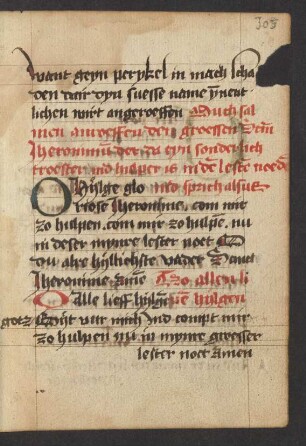 303
want geyn perykel in mach scha
den dair dyn suesse name ynent
lichen wirt angeroeffen Ouch sal
men anroeffen den groessen Sent
Iheronimum der da eyn sonderlich
troester ind hulper is in der leste noede
O Hylge glo ind sprich alsus
riose Iheronime. com mir
zo hulpen. com mir zo hulpe. nu
in deser mynre lester noet O
du alre hyllichste vader Sanct
Iheronime Amen Tzo allen li
O Alle lieff hylgen uen hylgen
gotz Bydt vur mich Ind coempt mir
zo hulpen nu in mynre groesser
lester noet Amen